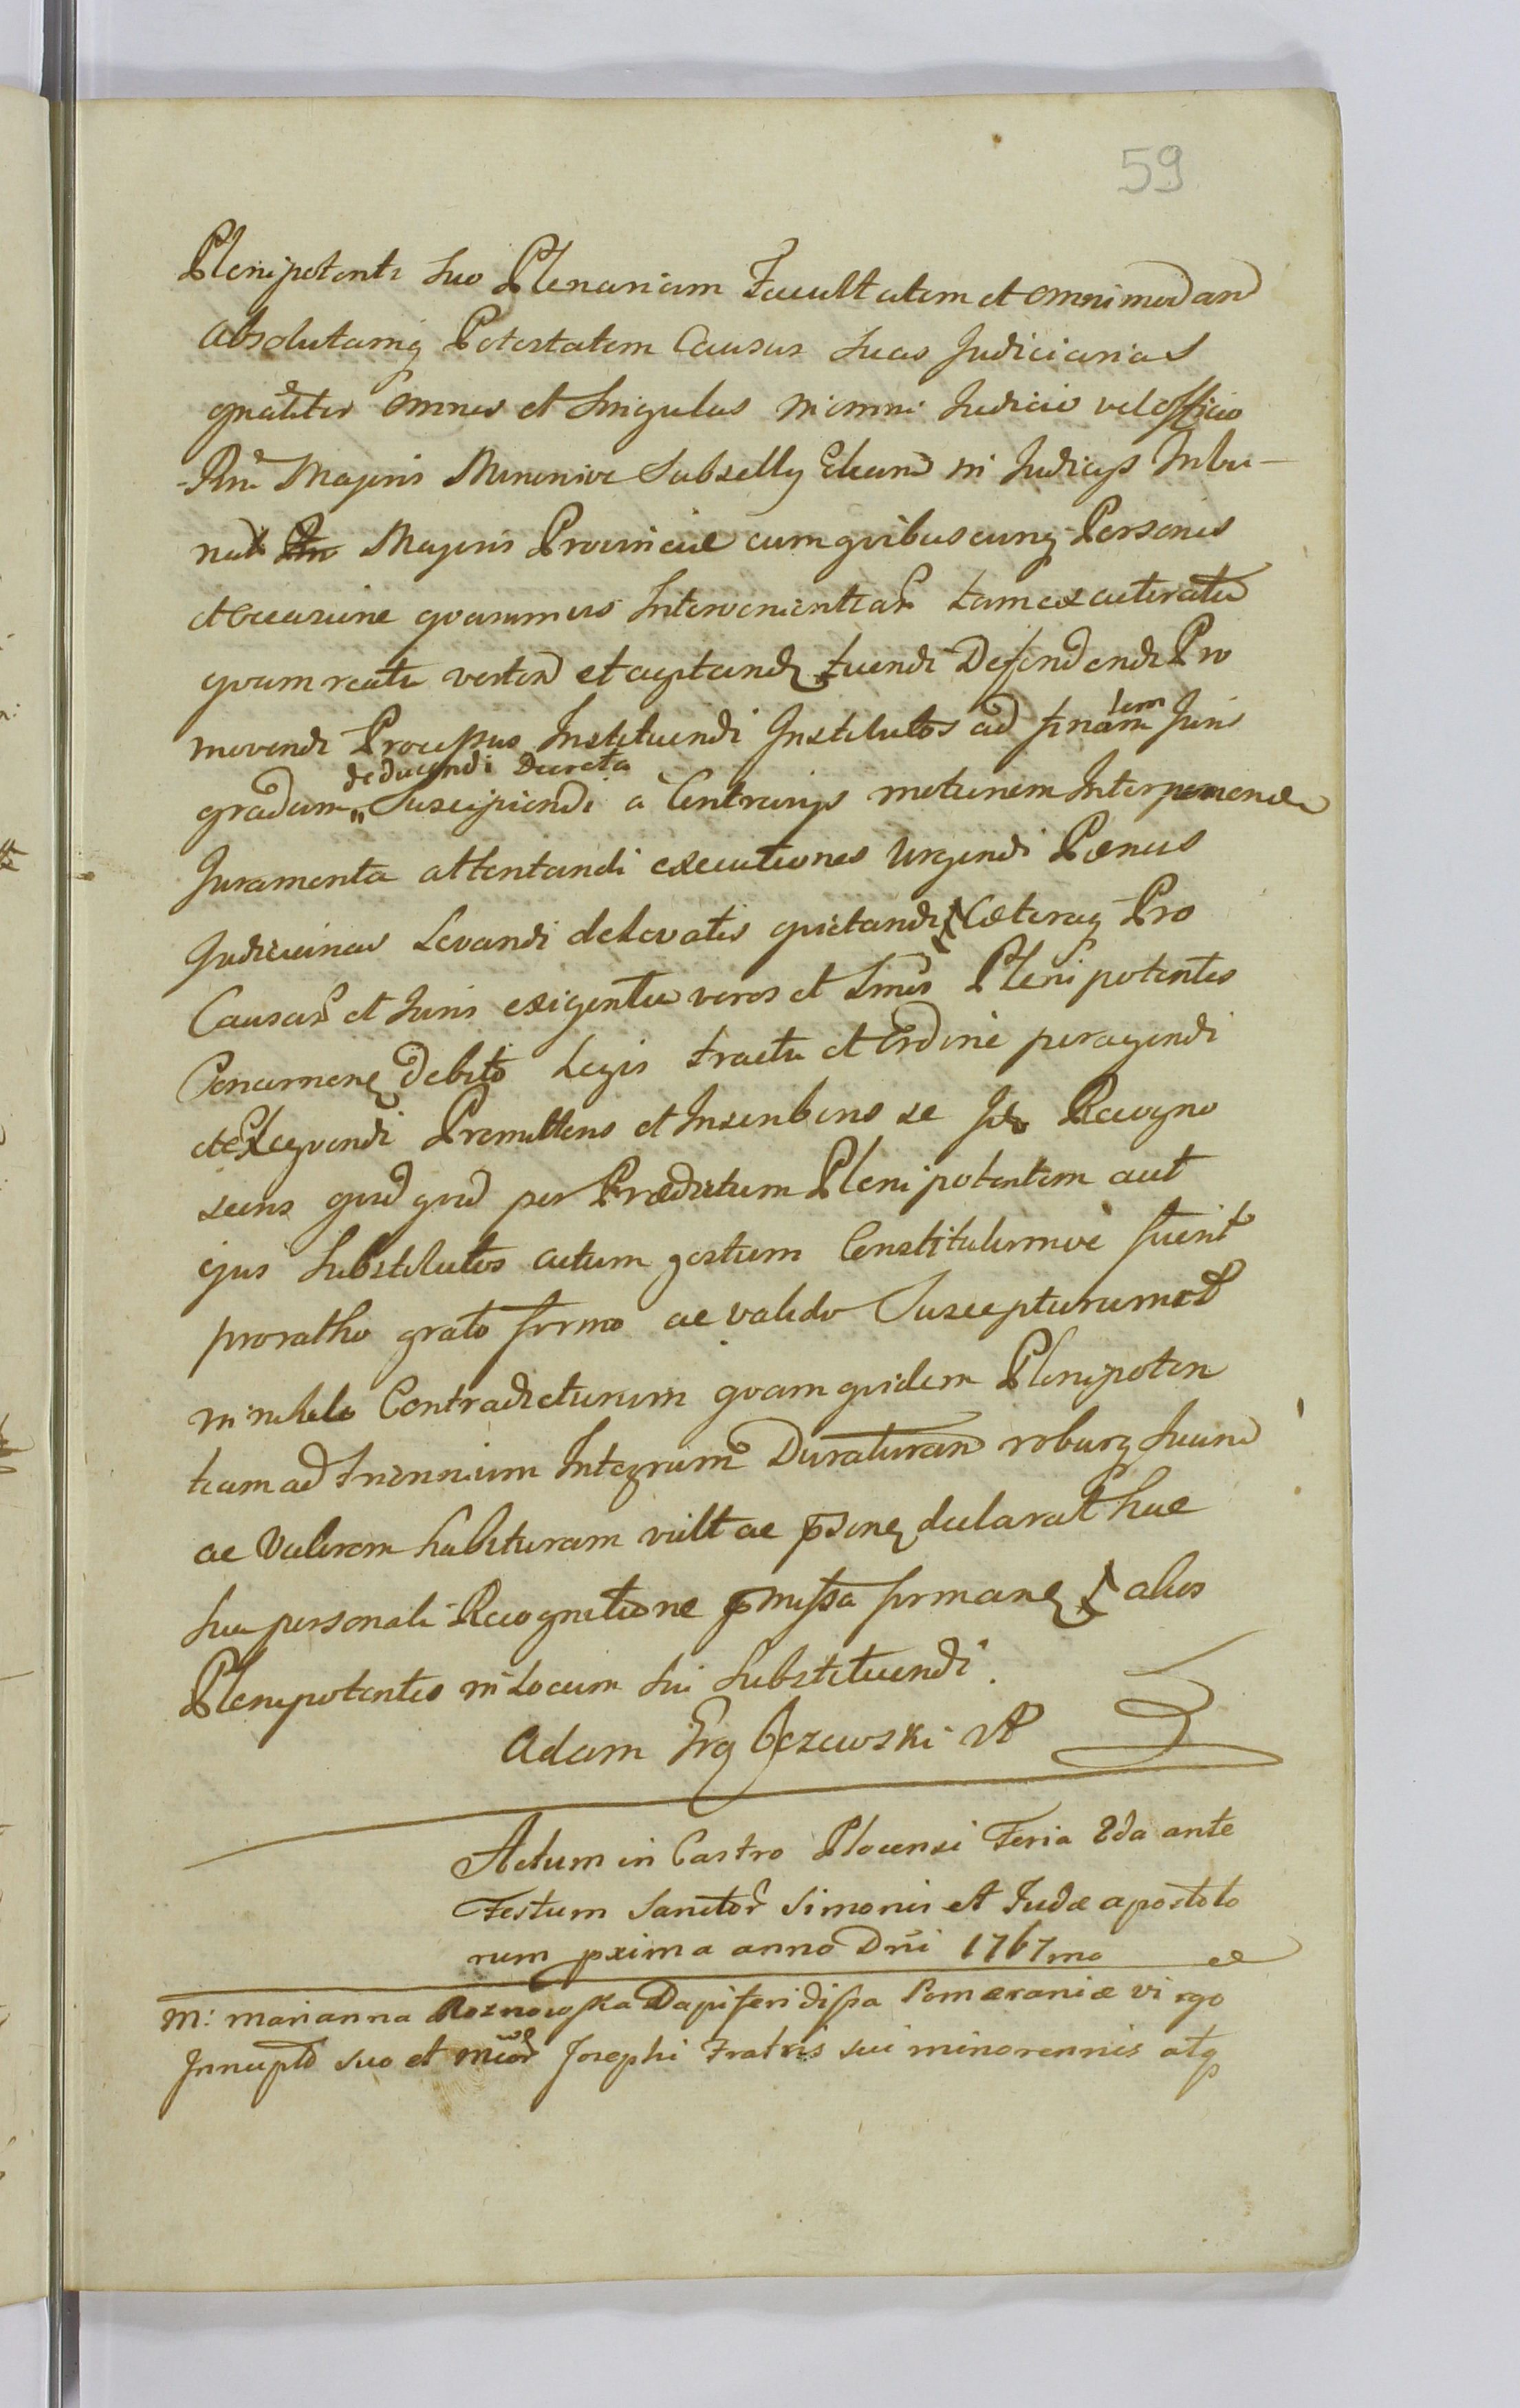 59
Plenipotenti suo Plenariam Facultatem et omnimodam
absolutamq Potestatem Causas suas Judiciarias
gnaliter omnes et Singulas in omni Judicio vel officio
Rni Majoris Minorisve Subsellij Etiam in Judicijs Tribu-
nal Majoris Provinciæ cum quibuscunq Personis
et occasione quarumvis Intervenientiar tam ex citeratu
quam reatu verten et aeptandq tuendi Defendendi Pro
movendi Processus Instituendi Institutos ad finalem Juris
deducendi Decreta
gradum „ Suscipiendi a Contrarijs motionem Interponendi
Juramenta attentandi executiones Urgendi Pænas
Judiciarias Levandi de Levatis quietandi Cæteraq Pro
Causar et Juris exigentia veros et Plenipotentes
Concernenq debito Legis tractu et ordine peragendi
et exequendi Promittens et Inscribens se Recogno
scens quod quid per Prædictum Plenipotentem aut
ejus Substitutos actum gestum Constitutumve fuerit
pro ratho grato firmo ac valido Suscepturum et
in nihilo Contradicturum quam quidem Plenipoten
tiam ad triennium Integrum Duraturam roburq suum
ac Valorem habituram vult ac declarat hac
sua personali Recognitione pmissa firmanq alios
Plenipotentes in Locum sui Substituendi.
Adam Jrzewski
Actum in Castro Plocensi Feria 2da ante
Festum Sanctor Simonis et Judæ aposto
rum pxima anno Dni 1767mo
M: Marianna Roznowska Dapiferidissa Pomeraniæ virgo
Innupta suo et Josephi Fratris sui minorennis atq